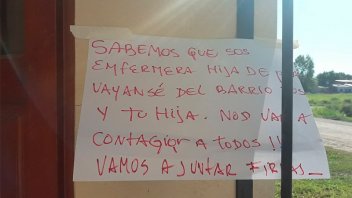 SABEMOS QUE SOS
ENFERMERA HIJA DE
VAYANSÉ DEL BARRIO
Y TU HIJA. NOS VAN A
CONTAGIAR A TODOS !!
VAMOS A JUNTAR FIRMAS_